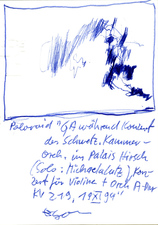 Polaroid "GA während Konzert
der Schweiz. Kammer-
Orch. im Palais Hirsch
(Solo: ), Kon-
zert für Violine + Orch A-Dur
KV 219, 19 XI 94"